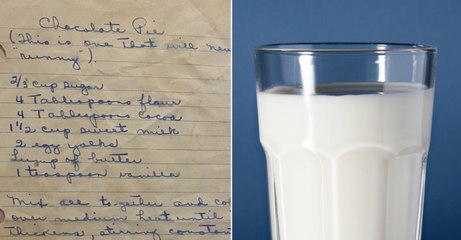 Chocolate Pie
(This is one that will nev
"runny").
2/3 cup sugar
4 Tablespoons flour
4 Tablespoons cocoa
1 1/2 cup sweet milk
2 egg yolks
Lump of butter
1 teaspoon vanilla
Mix all together and co
over medium heat until
thickens, stirring constan